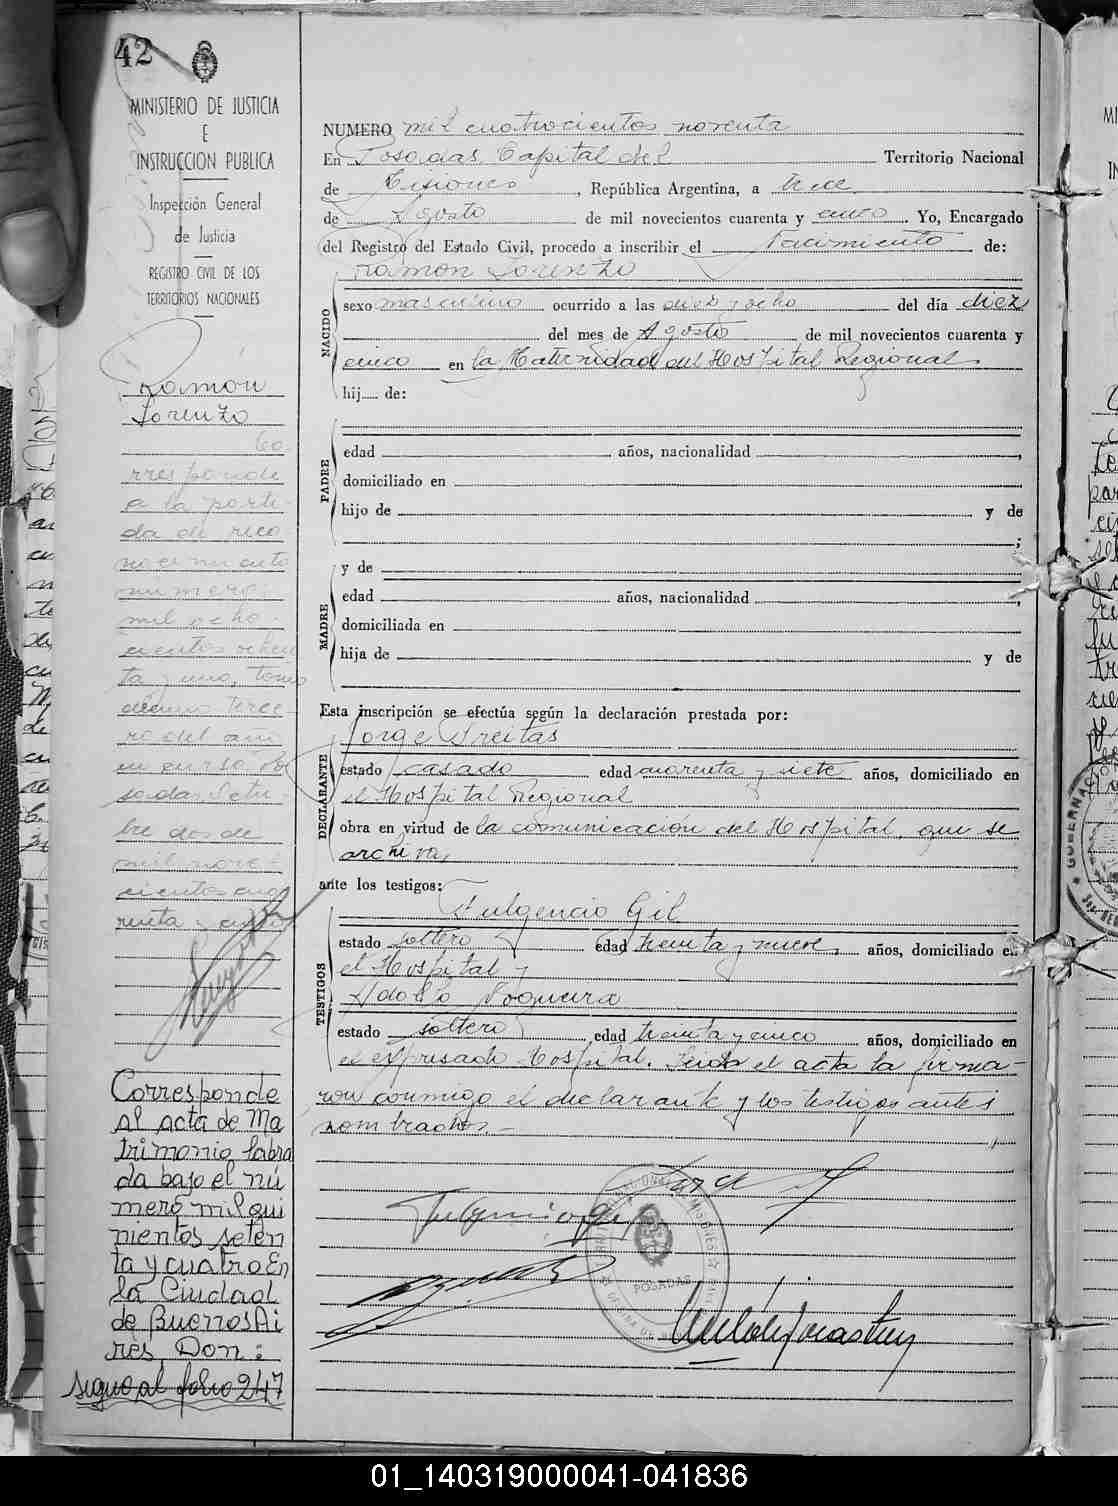 42
MINISTERIO DE JUSTICIA
E
INSTRUCCION PUBLICA
Inspección General
de Justicia
REGISTRO CIVIL DE LOS
TERRITORIOS NACIONALES
Ramón
Lorenzo
Co-
rresponde
a la parti-
da de reco
nocimiento
número
mil ocho-
cientos ochen
ta y uno, tomo
décimo terce-
ro del año
en curso. Po-
sadas, Setiem-
bre dos de
mil nove-
cientos cua
renta y cinco
Corresponde
al acta de Ma
trimonio labra
da bajo el nú
mero mil qui
nientos seten
ta y cuatro En
la Ciudad
de Buenos Ai
res, Don:
sigue al folio 247
NUMERO mil cuatrocientos noventa
En Posadas, Capital del Territorio Nacional
de Misiones, República Argentina, a trece
de Agosto de mil novecientos cuarenta y cinco. Yo, Encargado
del Registro del Estado Civil, procedo a inscribir el Nacimiento de:
Ramón Lorenzo
NACIDO
sexo masculino ocurrido a las diez y ocho del día diez
del mes de Agosto de mil novecientos cuarenta y
cinco en la Maternidad del Hospital Regional
hij..... de:
PADRE
edad años, nacionalidad ,
domiciliado en
hijo de y de
;
MADRE
y de
edad años, nacionalidad ,
domiciliada en
hija de y de
Esta inscripción se efectúa según la declaración prestada por:
DECLARANTE
Jorge Freitas
estado casado edad cuarenta y siete años, domiciliado en
el Hospital Regional
obra en virtud de la comunicación del Hospital, que se
archiva,
ante los testigos:
TESTIGOS
Fulgencio Gil
estado soltero edad treinta y nueve, años, domiciliado en
el Hospital y
Adolfo Noguera
estado soltero edad treinta y cinco años, domiciliado en
el expresado Hospital. Leída el acta la firma-
ron conmigo el declarante y los testigos antes
nombrados.-
POSADAS
01_140319000041-041836